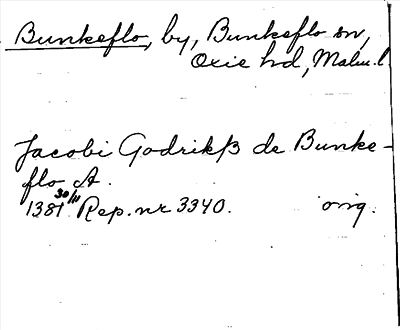 Bunkeflo, by, Bunkeflo sn,
Oxie hd, Malm.l.
Jacobi Godrikß de Bunke-
flo A.
1381 30/11 Rep. nr 3340. orig.